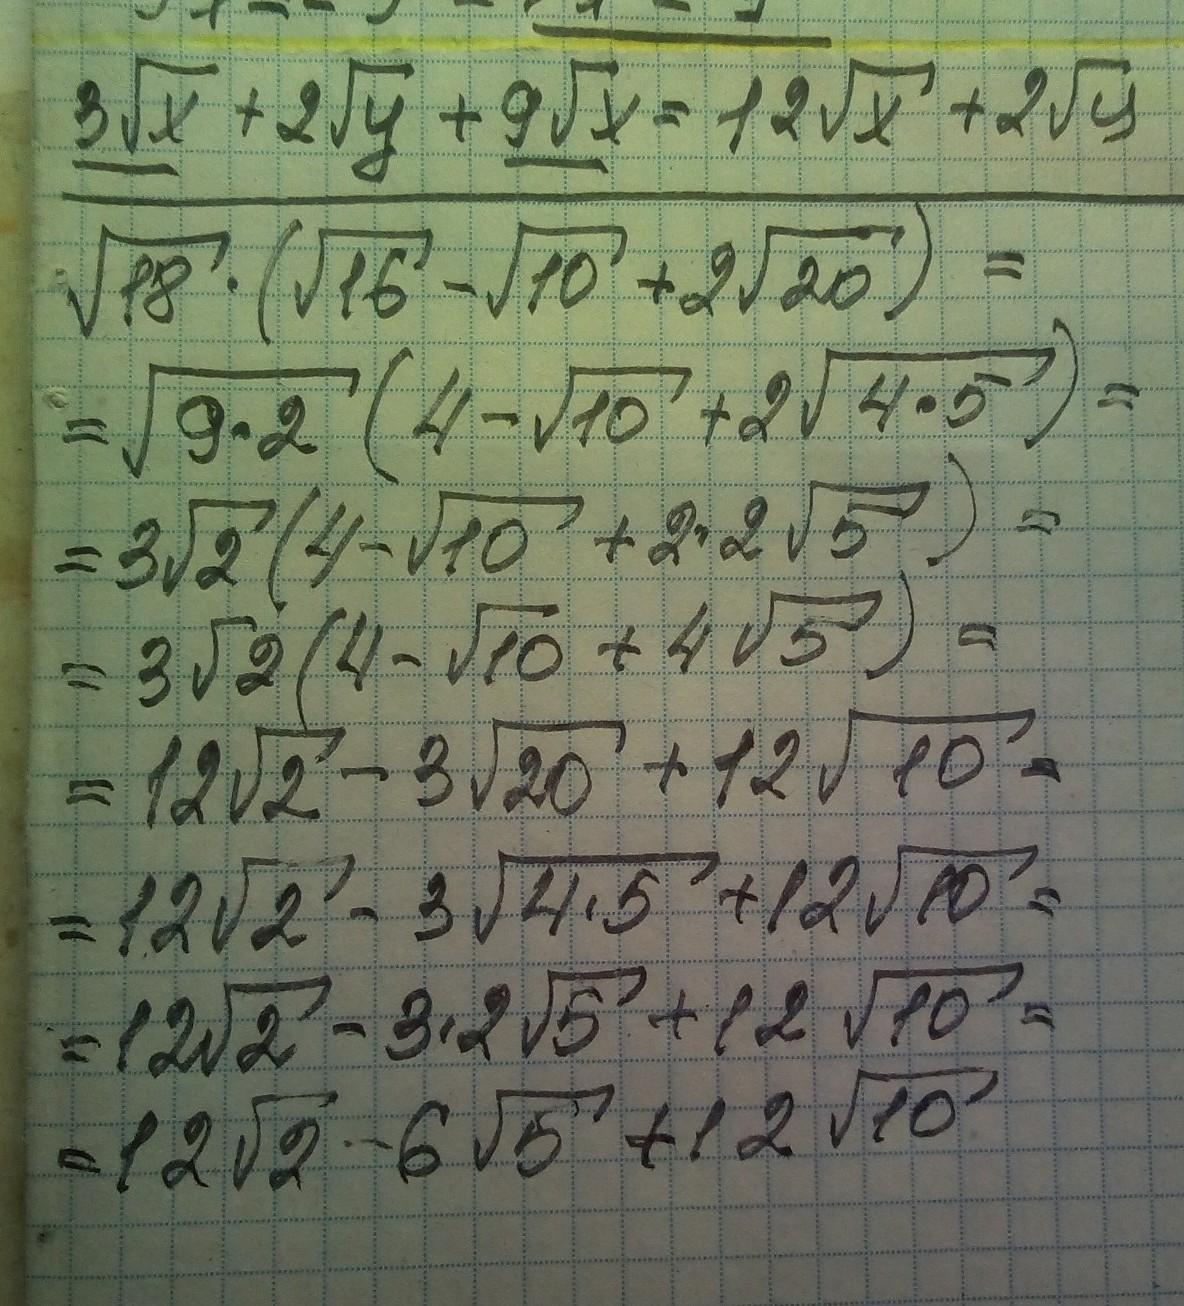 3√x + 2√y + 9√x = 12√x + 2√y
√18 · (√16 - √10 + 2√20) =
= √9·2 (4 - √10 + 2√4·5) =
= 3√2 (4 - √10 + 2·2√5) =
= 3√2 (4 - √10 + 4√5) =
= 12√2 - 3√20 + 12√10 =
= 12√2 - 3√4·5 + 12√10 =
= 12√2 - 3·2√5 + 12√10 =
= 12√2 - 6√5 + 12√10